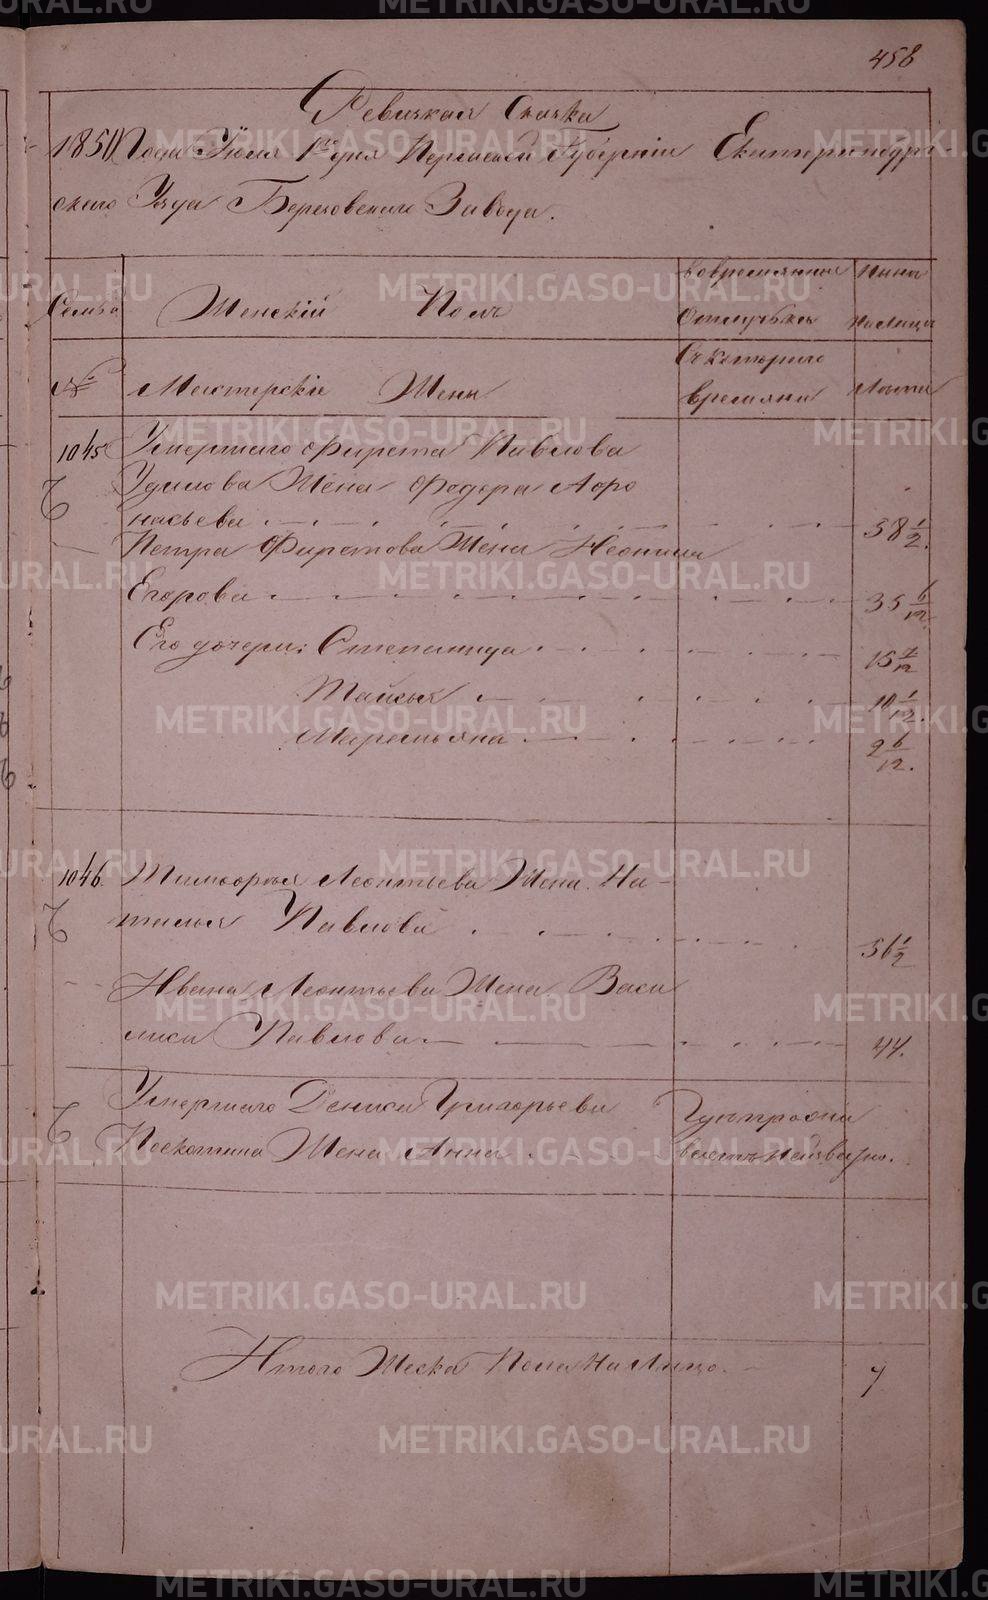 458
Ревижская Скаска
1850 Года Июля 1го дня Пермской Губернии Екатеринбург-
скаго Уезда Березовскаго Завода.
Семьи Женскій Полъ Во временные отлучьке Ныне на лицо
№ Мастерскіе Жены Съ котораго времяни Лета
1045 Умершаго Фирста Павлова
Удилова Жена Федора Афо
насьева 58 1/2.
Петра Фирстова Жена Неонила
Егорова 35 6/12.
Его дочери: Степанида 15 7/12
Таисья 10 1/12.
Маремьяна 2 6/12.
1046. Тимофея Леонтьева Жена На-
талья Павлова 56 1/2
Ивана Леонтьева Жена Васи
лиса Павлова 44.
Умершаго Дениса Григорьева
Поскотина Жена Анна
Итого Женска Пола На Лицо. 7
METRIKI.GASO-URAL.RU